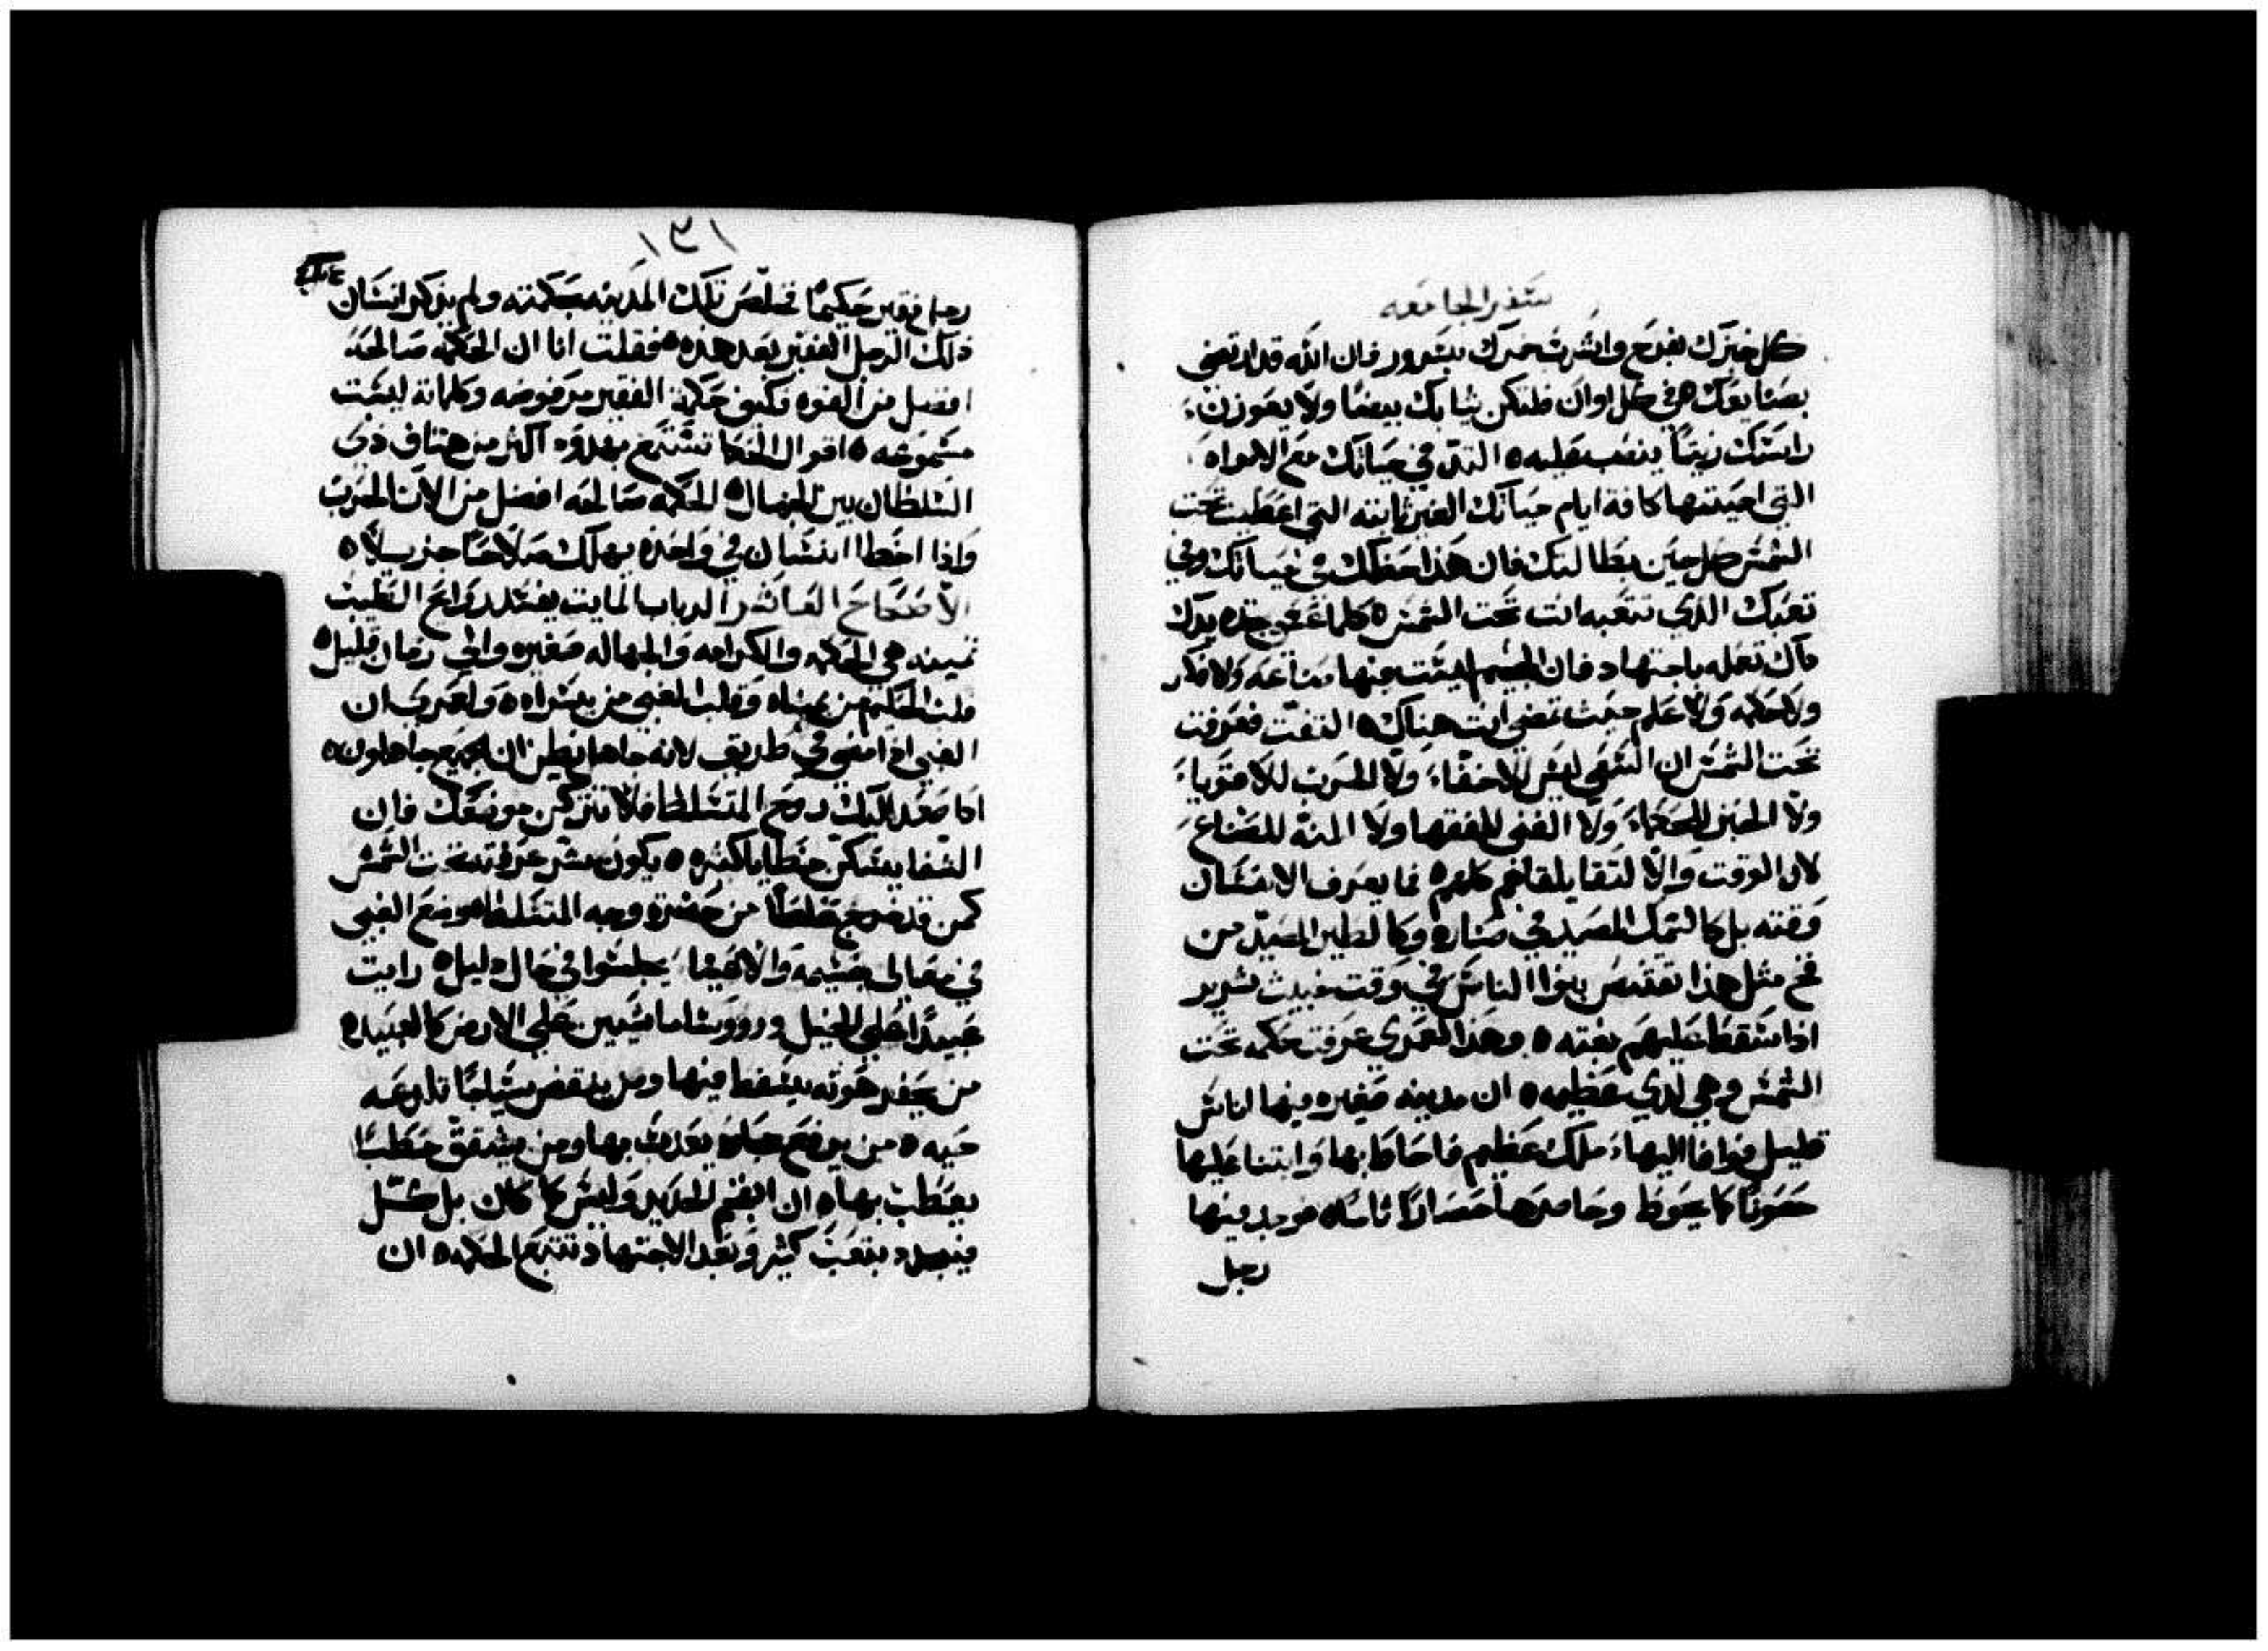 سفر الجامعه
كل خبزك بفرح واشرب خمرك بسرور فان الله قد ارتضي
بصنايعك هي في كل اوان فلتكن ثيابك بيضا ولا يعوزن
راسك زيتا ينصب عليه ه التذ في حياتك مع الامراه
التي احببتها كافة ايام حياتك الغير ثابته التي اعطيت تحت
الشمس كل حين بطالتك فان هذا حظك في حياتك وفي
تعبك الذي تتعبه انت تحت الشمس ه كلما تجده يدك
تعمله باجتهاد فان الجحيم ليست فيها صناعه ولا فكر
ولا حكمه ولا علم حيث تمضي انت هناك ه التفت فعرفت
تحت الشمس ان السعي ليس للاخفاء ولا الحرب للاقوياء
ولا الخبز للحكماء ولا الغني للفقها ولا المنه للصناع
لان الوقت والالتقا يلقاهم كلهم ه فما يعرف الانسان
وقته بل كالسمك المصيد في صناره وكالطير المصيد من
فخ مثل هذا تقتنص بنوا الناس في وقت خبيث شرير
اذا سقط عليهم بغته ه وهذا لعمري عرفت حكمه تحت
الشمس وهي لدي عظيمه ه ان مدينه صغيره فيها اناس
قليل فوافا اليها ملك عظيم فاحاط بها وابتنا عليها
حصونا كما يحوط وحاصرها حصارا تاما ه فوجد فيها
رجل
١٣١
رجل فقير حكيما تخلص تلك المدينه بحكمته ولم يذكر انسان
ذلك الرجل الفقير بعد هذه ه فقلت انا ان الحكمه صالحه
افضل من القوه فكيف حكمة الفقير مرفوضه وكلماته ليست
مسموعه ه اقوال الحكما تستمع بهدوء اكثر من هتاف ذوي
السلطان بين الجهال ه الحكمه صالحه افضل من الات الحرب
واذا اخطا انسان في واحده يهلك صلاحا جزيلا ه
الاصحاح العاشر الدباب المايت يفسد روايح الطيب
ثمينه هي الحكمه والكرامه والجهاله صغيره والي زمان قليل ه
قلب الحكيم من يمناه وقلب الغبي من يسراه ه ولعمري ان
الغبي اذا مشي في طريق لانه جاهل يظن ان الجميع جاهلون ه
اذا صعد اليك روح المتسلط فلا تتركن موضعك فان
الشفا يسكن خطايا كثيره ه يكون شر عرفته تحت الشمس
كمن قد خرج غلطا من حضرة وجه المتسلط ه وضع الغبي
في معالي جسيمه والاغنيا يجلسوا في حال دليل ه رايت
عبيدا علي الخيل وروسا ماشيين علي الارض كالعبيد ه
من يحفر هوته يسقط فيها ومن ينقض سياجا تلدغه
حيه ه من يرفع حجاره يعدب بها ومن يشقق حطبا
يعطب بها ه ان ابغم الحديد وليس كما كان بل كسل
فيجدد بتعب كثير وبعد الاجتهاد تتبع الحكمه ه ان